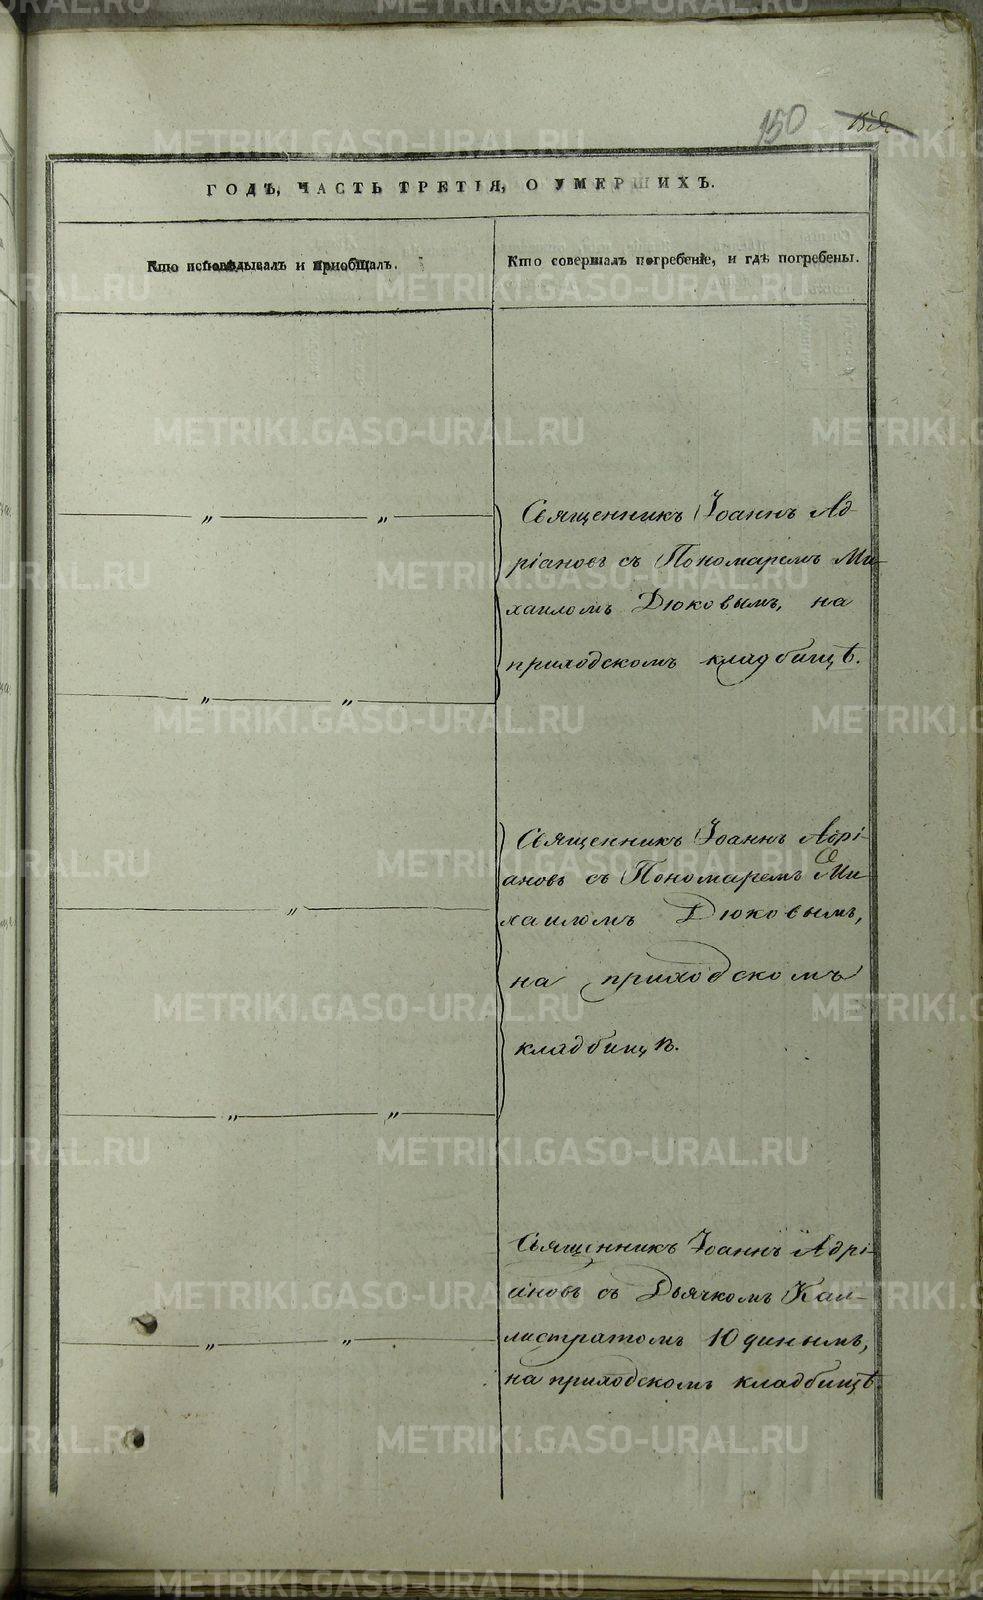 150
ГОДЪ, ЧАСТЬ ТРЕТІЯ, О УМЕРШИХЪ.
Кто исповѣдывалъ и приобщалъ.
Кто совершалъ погребеніе, и гдѣ погребены.
Священникъ Іоаннъ Ад-
ріановъ съ Пономаремъ Ми-
хаиломъ Дюковымъ, на
приходскомъ кладбищѣ.
Священникъ Іоаннъ Адрі-
ановъ съ Пономаремъ Ми-
хаиломъ Дюковымъ,
на приходскомъ
кладбищѣ.
Священникъ Іоаннъ Адрі-
ановъ съ Дьячкомъ Кал-
листратомъ Юдинымъ,
на приходскомъ кладбищѣ.
METRIKI.GASO-URAL.RU